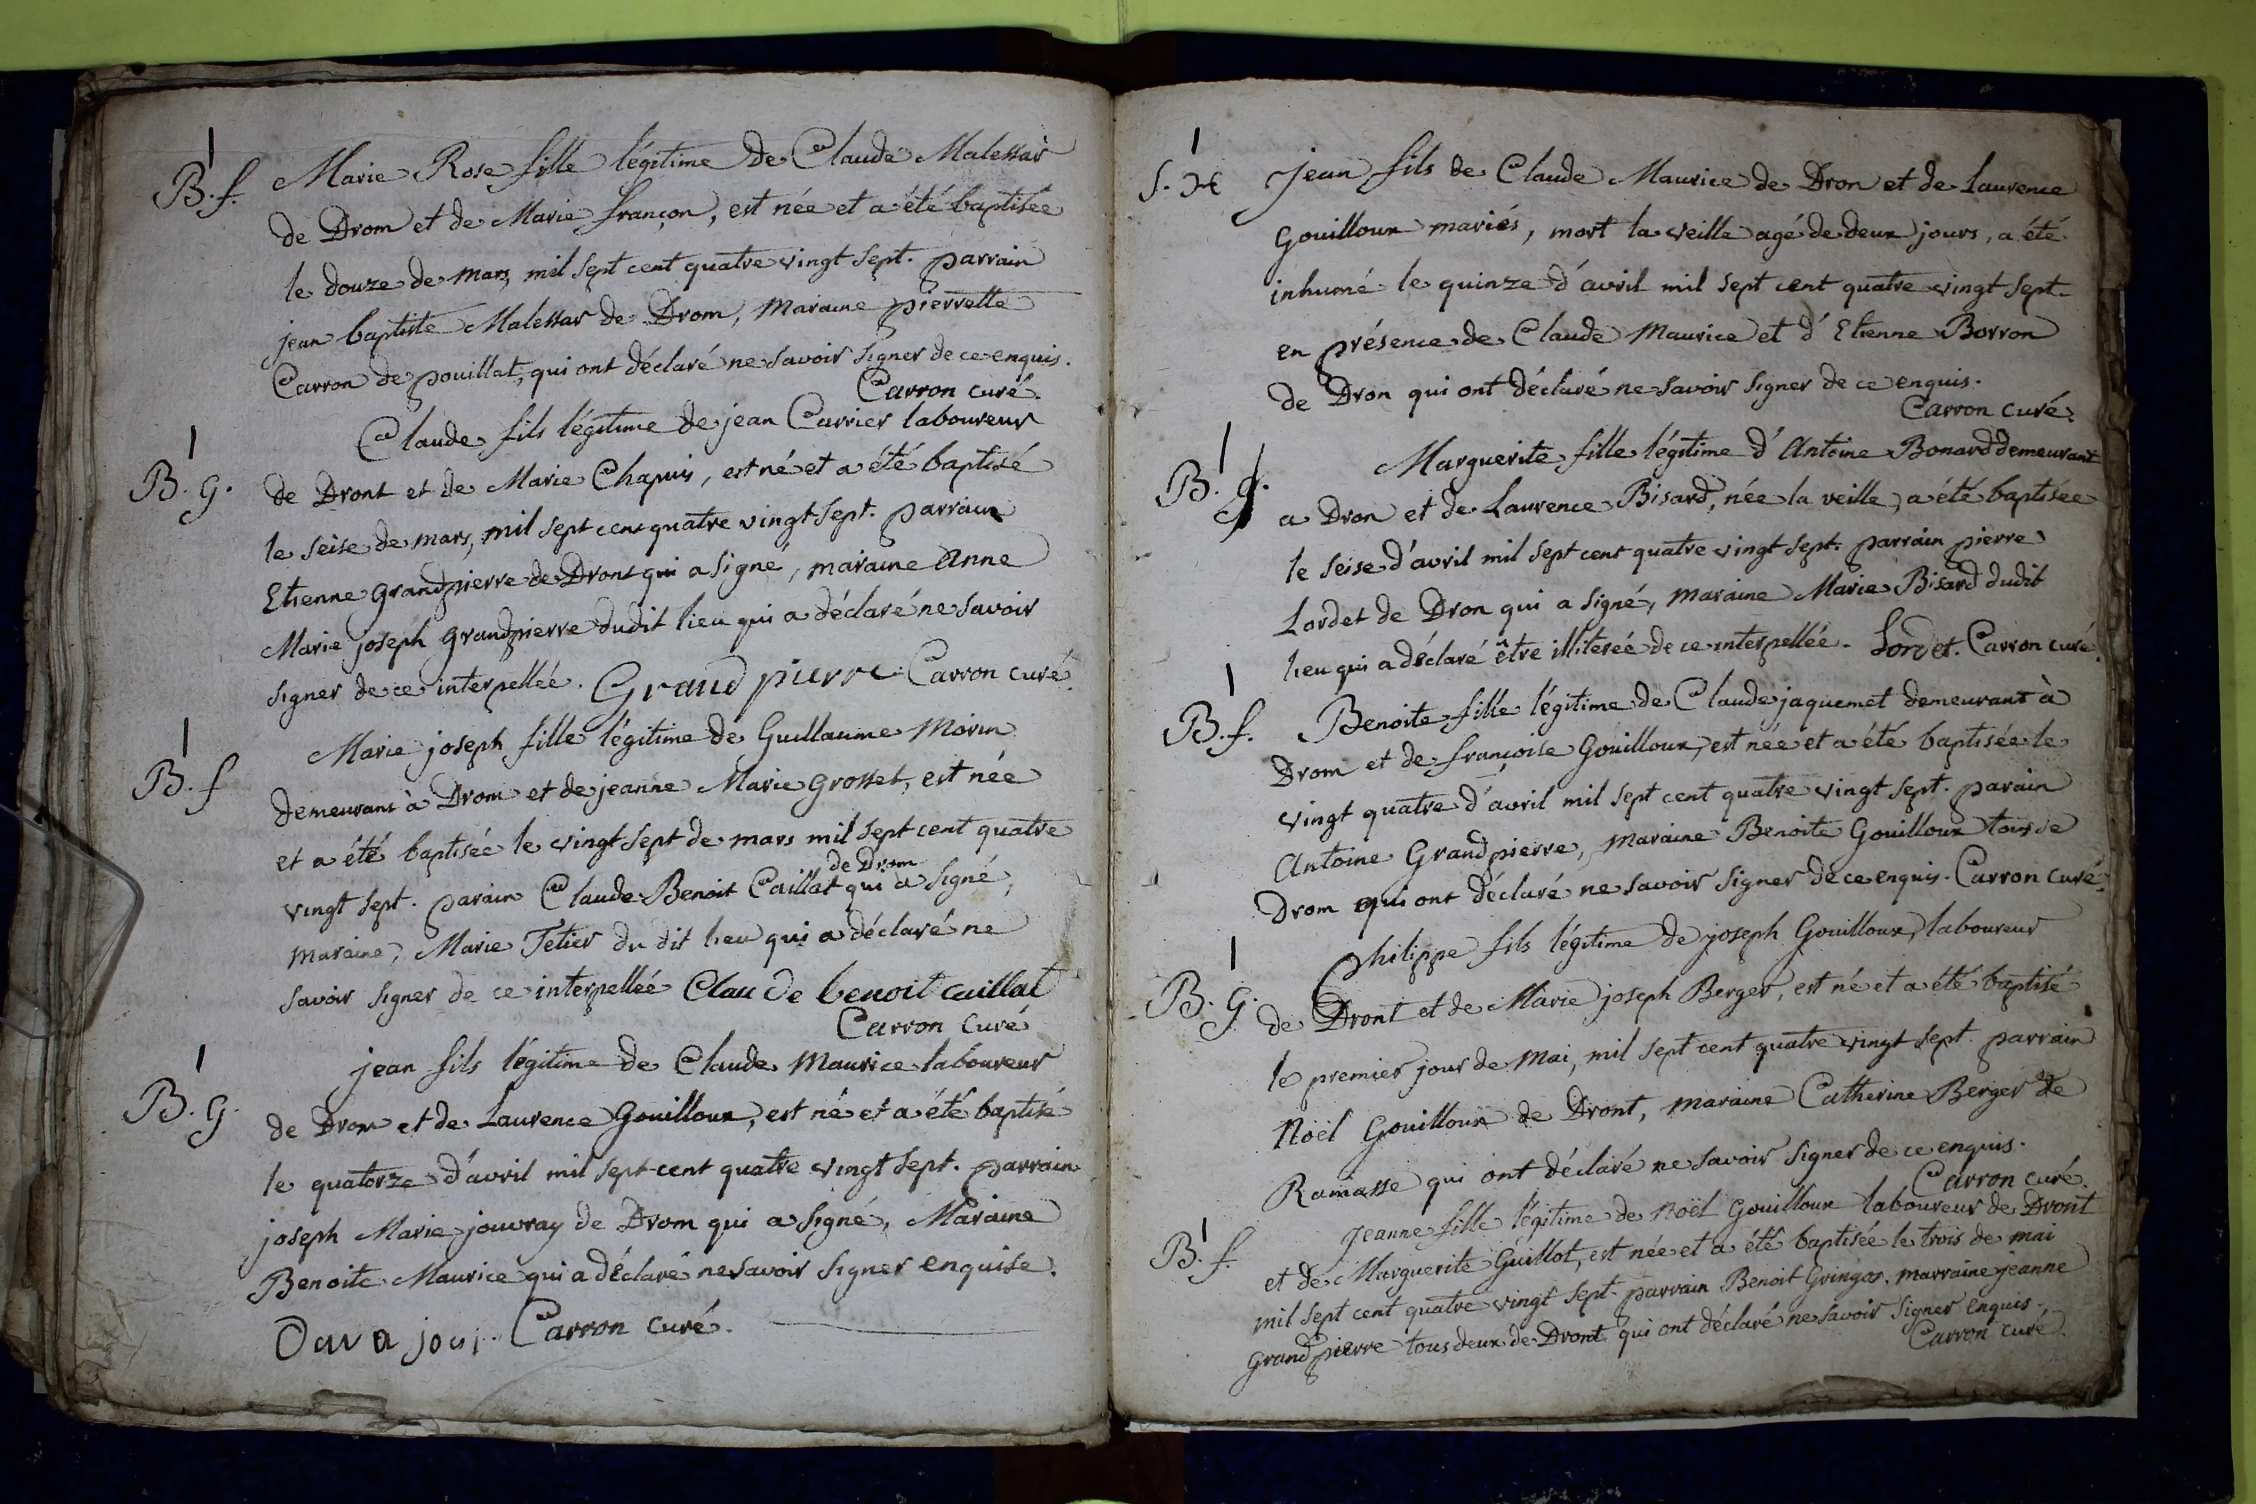 B.f. Marie Rose fille légitime de Claude Malessar
de Drom et de Marie françon, est née et a été baptisée
le douze de mars, mil sept cent quatre vingt sept. parrain
jean baptiste Malessar de Drom, Maraine pierrette
Carron de pouillat, qui ont déclaré ne savoir signer de ce enquis.
Carron curé.
Claude fils légitime de jean Carrier laboureur
B. g. de Dront et de Marie Chapuis, est né et a été baptisé
le seise de mars, mil sept cent quatre vingt sept. parrain
Etienne grandpierre de Dront qui a signé, maraine Anne
Marie joseph grandpierre dudit lieu qui a déclaré ne savoir
signer de ce interpellée. Grand pierre Carron curé.
Marie joseph fille légitime de Guillaume Morin
B. f demeurant à Drom et de jeanne Marie Grosset, est née
et a été baptisée le vingt sept de mars mil sept cent quatre
de Drom
vingt sept. parain Claude Benoit Caillat qui a signé,
maraine, Marie Tetier du dit lieu qui a déclaré ne
savoir signer de ce interpellée Claude benoit caillat
Carron Curé
jean fils légitime de Claude Maurice laboureur
B. g. de Drom et de Laurence Gouilloux, est né et a été baptisé
le quatorze d'avril mil sept cent quatre vingt sept. parrain
joseph Marie jouvray de Drom qui a signé, Maraine
Benoite Maurice qui a déclaré ne savoir signer enquise.
Carron curé.
S. Jean fils de Claude Maurice de Dron et de Laurence
Gouilloux mariés, mort la veille agé de deux jours, a été
inhumé le quinze d'avril mil sept cent quatre vingt sept.
en présence de Claude Maurice et d'Etienne Borron
de Dron qui ont déclaré ne savoir signer de ce enquis.
Carron curé.
Marguerite fille légitime d'Antoine Bonard demeurant
B. f. a Dron et de Laurence Bisard, née la veille, a été baptisée
le seise d'avril mil sept cent quatre vingt sept. parrain pierre
Lordet de Dron qui a signé, maraine Marie Bisard dudit
lieu qui a déclaré être illiterée de ce interpellée. Lordet. Carron curé.
B. f. Benoite fille légitime de Claude jaquemet demeurant à
Drom et de françoise Gouilloux, est née et a été baptisée le
vingt quatre d'avril mil sept cent quatre vingt sept. parain
Antoine Grandpierre, maraine Benoite Gouilloux tous de
Drom qui ont déclaré ne savoir signer de ce enquis. Carron curé.
Philippe fils légitime de joseph Gouilloux, laboureur
B. g. de Dront et de Marie joseph Berger, est né et a été baptisé
le premier jour de Mai, mil sept cent quatre vingt sept. parrain
Noël Gouilloux de Dront, maraine Catherine Berger de
Ramasse qui ont déclaré ne savoir signer de ce enquis.
Carron curé.
Jeanne fille légitime de Noël Gouilloux laboureur de Dront
B. f. et de Marguerite Guillot, est née et a été baptisée le trois de mai
mil sept cent quatre vingt sept. parrain Benoit Gringoz. marraine jeanne
grandpierre tous deux de Dront qui ont déclaré ne savoir signer enquis.
Carron curé.